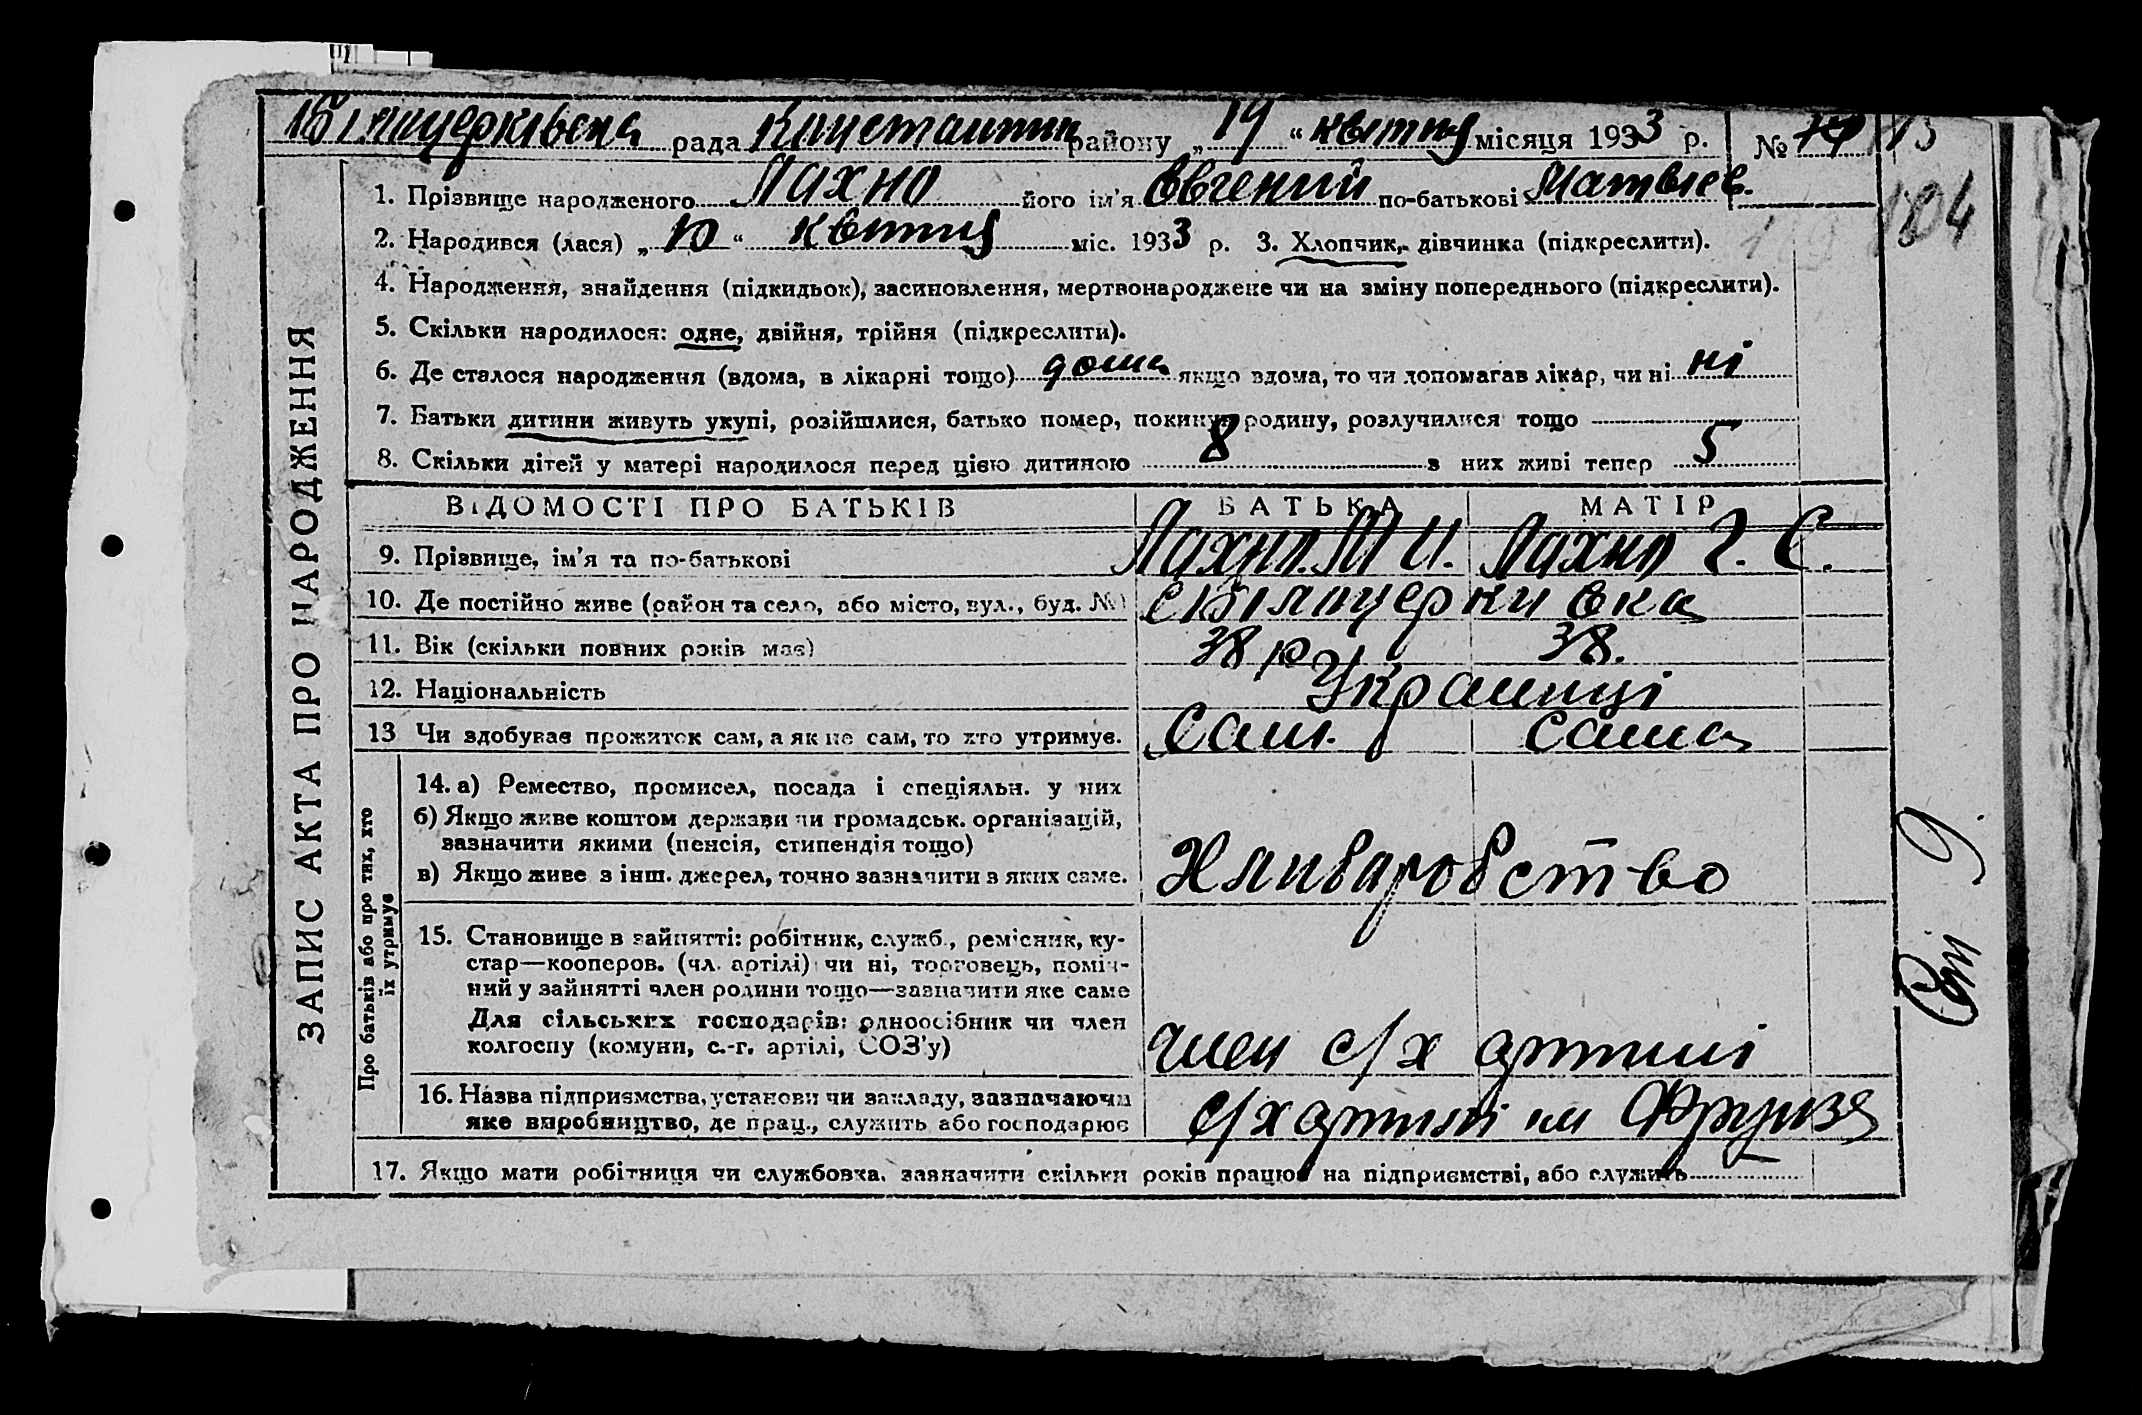 Білоцерківська рада Константин району „ 19 “ квітня місяця 1933 р. № 13
1. Прізвище народженого Лахно його ім'я Євгений по-батькові Матвіев.
104
2. Народився (лася) „ 10 “ квітня міс. 1933 р. 3. Хлопчик, дівчинка (підкреслити).
4. Народження, знайдення (підкидьок), засиновлення, мертвонароджене чи на зміну попереднього (підкреслити).
5. Скільки народилося: одне, двійня, трійня (підкреслити).
6. Де сталося народження (вдома, в лікарні тощо) дома якщо вдома, то чи допомагав лікар, чи ні ні
7. Батьки дитини живуть укупі, розійшлися, батько помер, покинув родину, розлучилися тощо
8. Скільки дітей у матері народилося перед цією дитиною 8 з них живі тепер 5
ЗАПИС АКТА ПРО НАРОДЖЕННЯ
ВІДОМОСТІ ПРО БАТЬКІВ БАТЬКА МАТІР
9. Прізвище, ім'я та по-батькові Лахно М И. Лахно Г. С.
10. Де постійно живе (район та село, або місто, вул., буд. №) с Білоцеркивка
11. Вік (скільки повних років має) 38 р 38.
12. Національність Украинці
13 Чи здобуває прожиток сам, а як не сам, то хто утримує. Сам. сама
Про батьків або про тих, хто їх утримує
14. а) Ремество, промисел, посада і спеціяльн. у них
б) Якщо живе коштом держави чи громадськ. організацій,
зазначити якими (пенсія, стипендія тощо)
в) Якщо живе з інш. джерел, точно зазначити з яких саме.
Хлиборобство
15. Становище в зайнятті: робітник, служб., ремісник, ку-
стар—кооперов. (чл. артілі) чи ні, торговець, поміч-
ний у зайнятті член родини тощо—зазначити яке саме
Для сільських господарів: одноосібник чи член
колгоспу (комуни, с.-г. артілі, СОЗ'у)
член с/х артилі
16. Назва підприємства, установи чи закладу, зазначаючи
яке виробництво, де прац., служить або господарює
с/х артилі им Фрунзе
17. Якщо мати робітниця чи службовка, зазначити скільки років працює на підприємстві, або служить